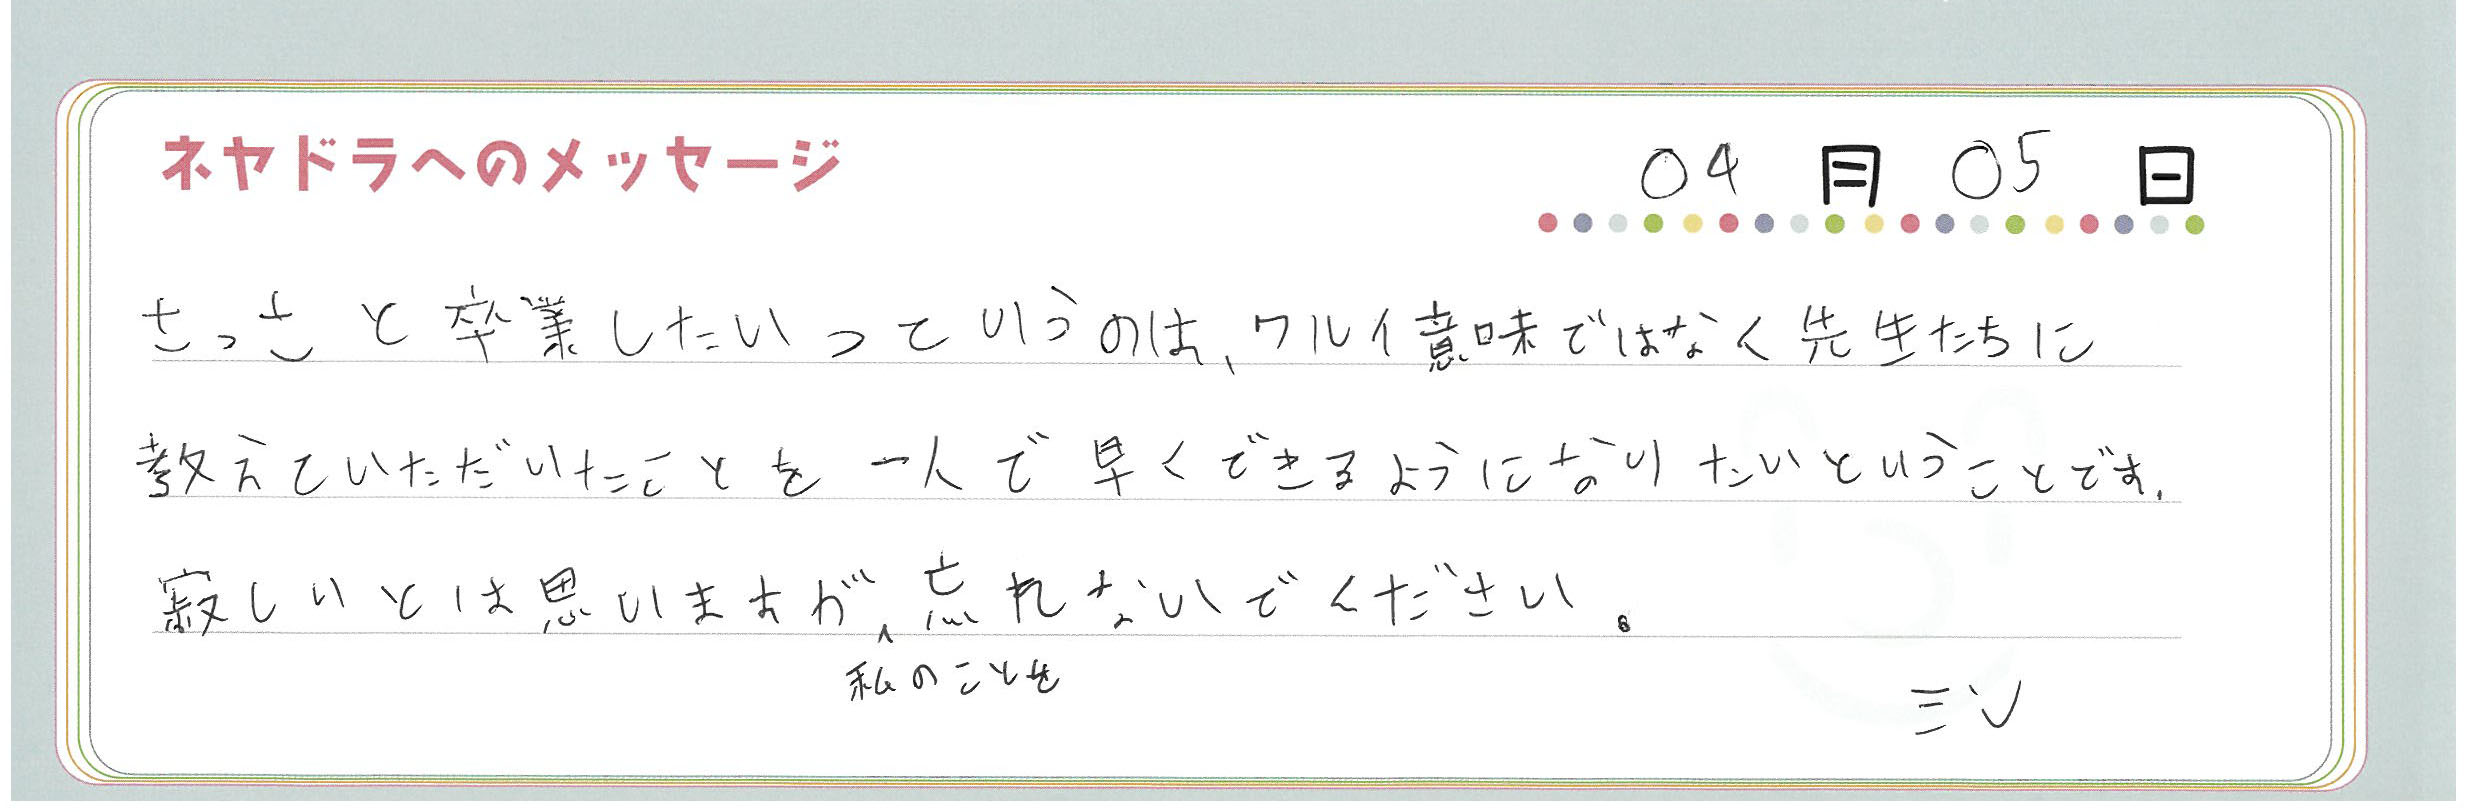 ネヤドラへのメッセージ
04月05日
さっさと卒業したいっていうのは、ワルイ意味ではなく先生たちに
教えていただいたことを一人で早くできるようになりたいということです。
寂しいとは思いますが、忘れないでください。
私のことを
ミン